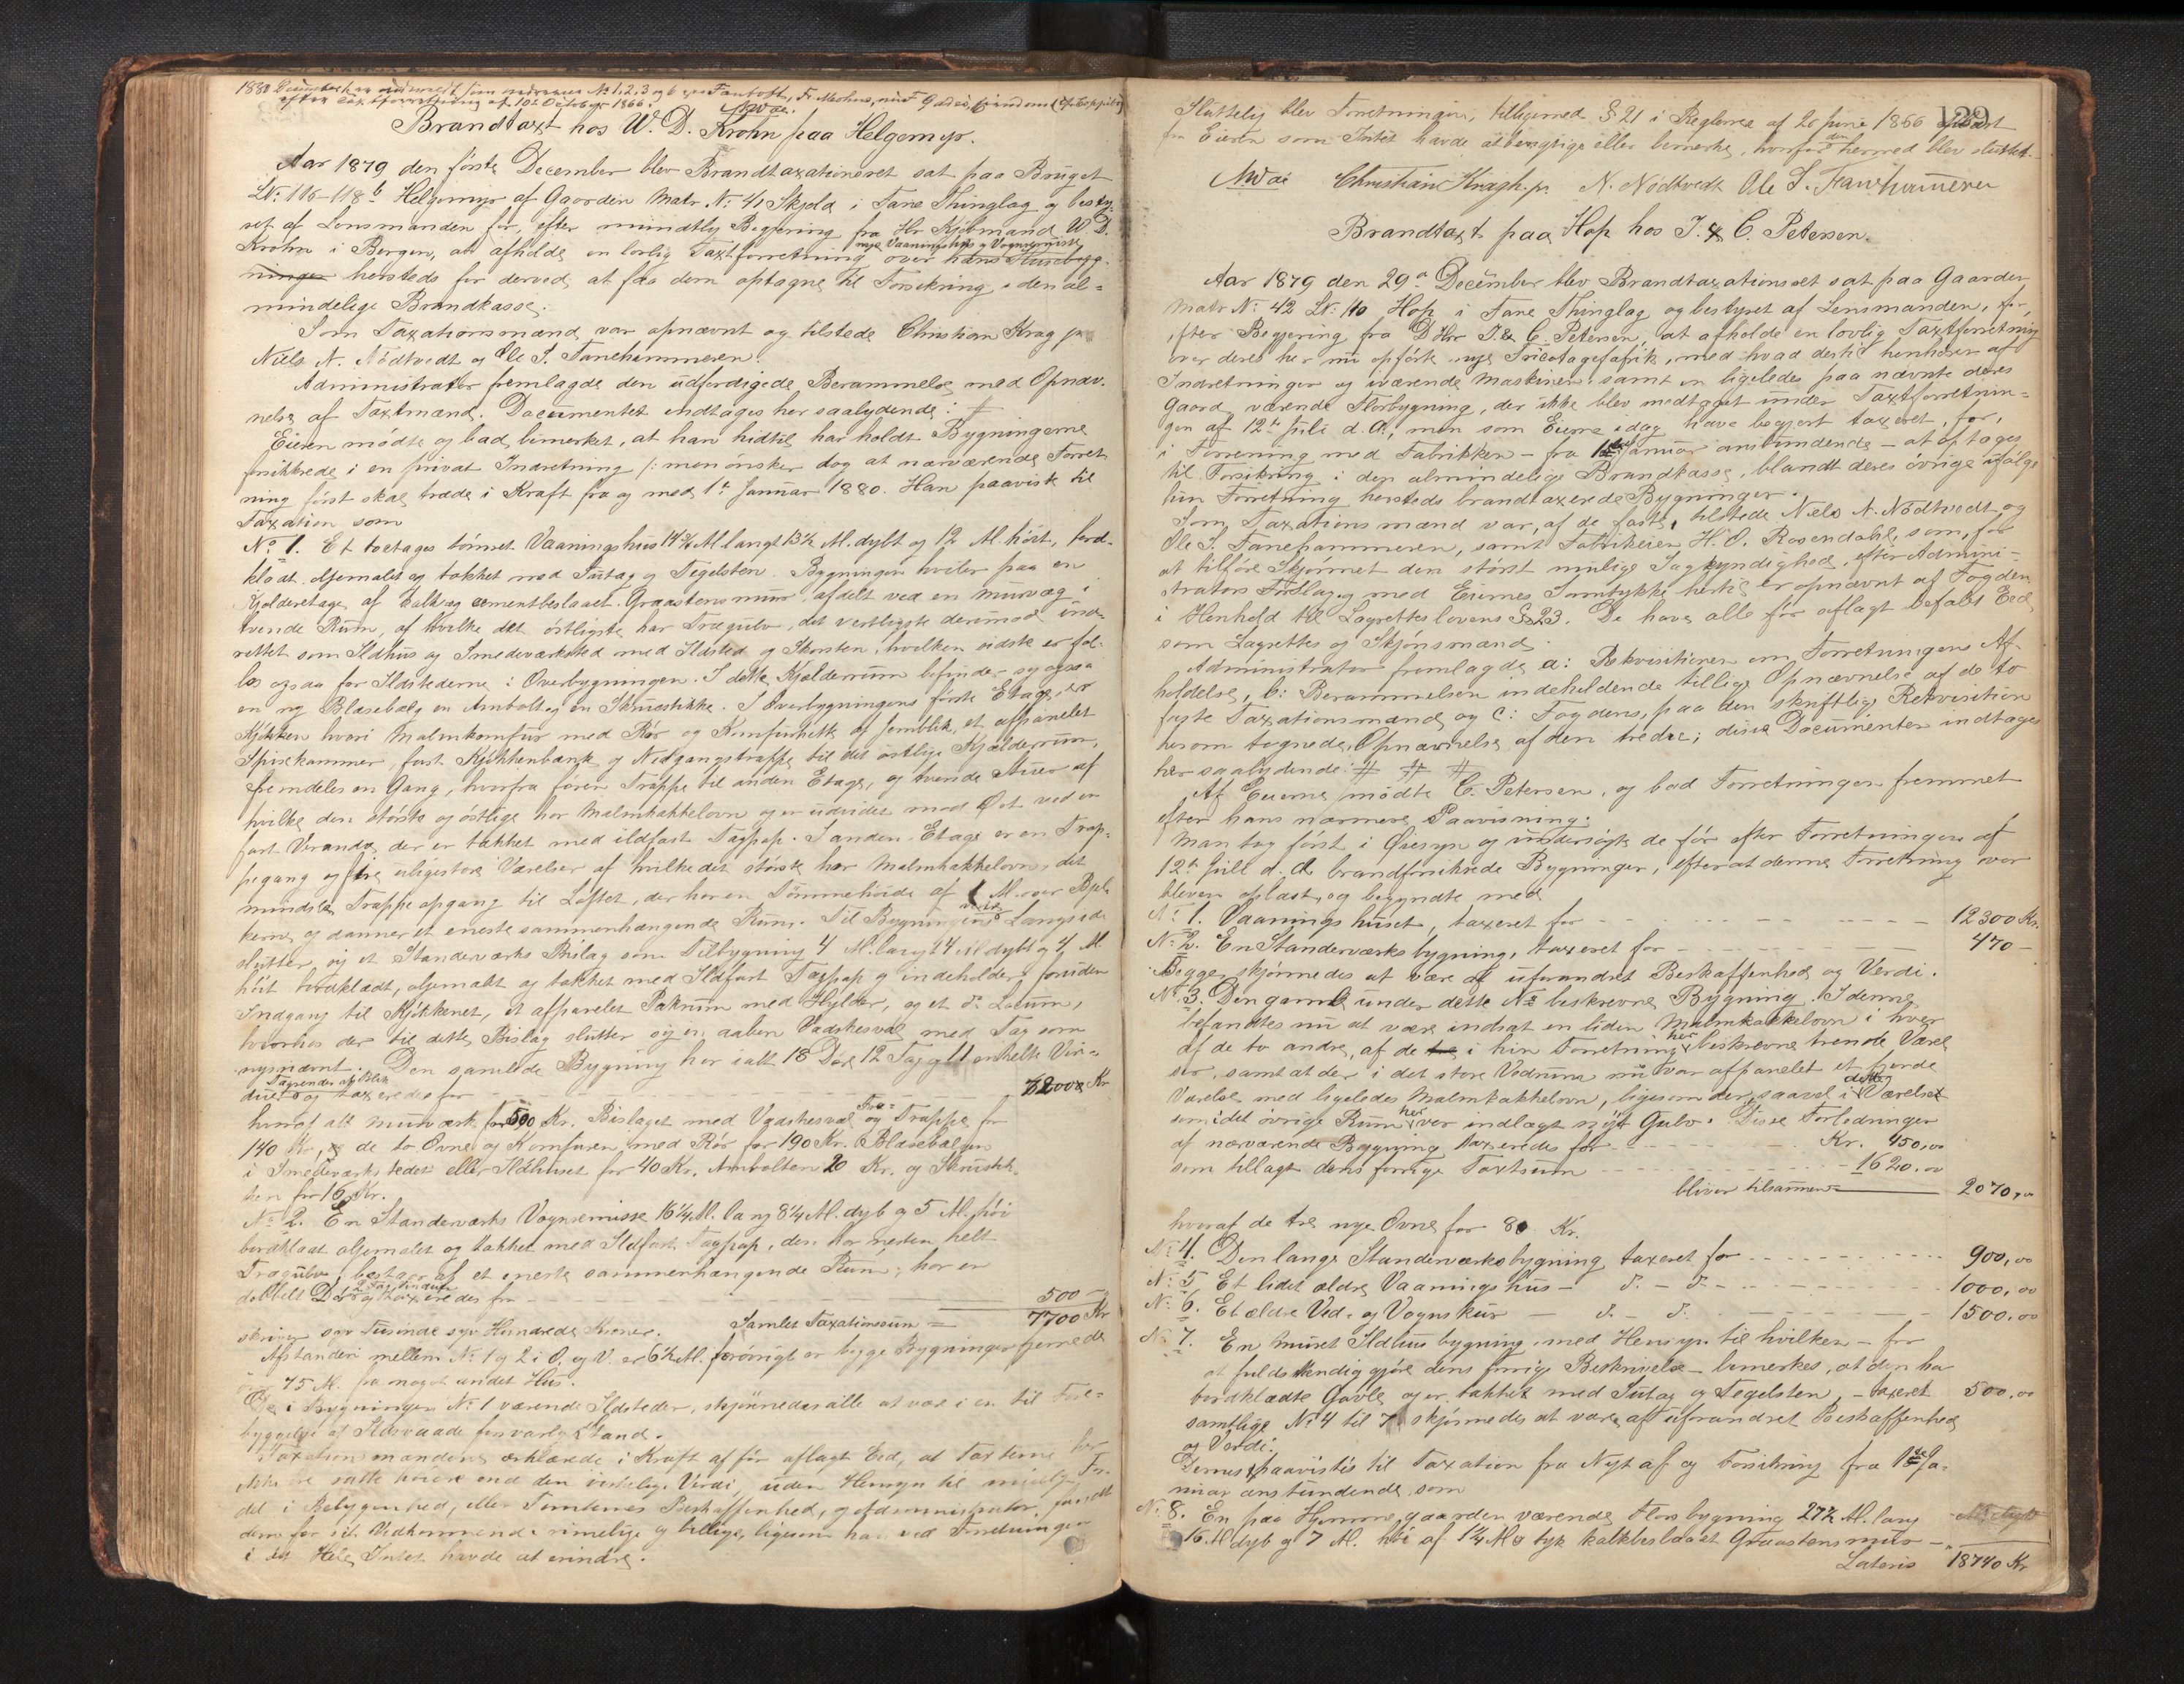 Brandtaxt hos W. D. Krohn paa Helgemyr.
Aar 1879 den første December blev Brandtaxationsret sat paa Bruget
LNr. 116-118b Helgemyr af Gaarden Matr. No. 41 Skjold i Fane Thinglag og besty-
ret af Lensmanden for, efter mundtlig Begjæring fra Hr Kjøbmand W. D.
nye Vaaningshus og Vognremisse
Krohn i Bergen, at afholde en lovlig Taxtforretning over hans Husebyg-
ninger hersteds for derved at faa dem optagne til Forsikring i den al-
mindelige Brandkasse.
Som Taxationsmænd var opnævnt og tilstede Christian Krag jr.
Niels N. Nödtvedt og Ole S. Fanehammeren.
Administrator fremlagde den udfærdigede Berammelse med Opnæv-
nelse af Taxtmænd. Documentet indtages her saalydende:
Eieren mödte og bad bemerket, at han hidtil har holdt Bygningerne
forsikkrede i en privat Indretning /: men ønsker dog at nærværende Forret-
ning først skal træde i Kraft fra og med 1t Januar 1880. Han paaviste til
Taxation som
No. 1. Et toetages tømret Vaaningshus 14¾ Al. langt 13½ Al. dybt og 12 Al. höit, bord-
klædt oljemalet og takket med Sutag og Tegelsten. Bygningen hviler paa en
Kjælderetage af kalk og cementbeslaaet Graastensmur, afdelt ved en Murvæg i
tvende Rum, af hvilke det östligste har Trægulv, det vestligste derimod ind-
rettet som Ildhus og Smedeværksted med Ildsted og Skorsten, hvilken sidste er fæl-
les ogsaa for Ildstederne i Overbygningen. I dette Kjælderrum befinder sig ogsaa
en ny Blæsebælg en Ambolt og en Skruestikke. I Overbygningens første Etage, er
Kjøkken hvori Malmkomfur med Rör og Komfurhætte af Jernblik, et afpanelet
Spisekammer, fast Kjøkkenbænk og Nedgangstrappe til det østlige Kjælderrum,
fremdeles en Gang, hvorfra fører Trappe til anden Etage, og tvende Stuer af
hvilke den största og östlige har Malmkakkelovn og er udvidet mod Øst ved en
fast Veranda der er takket med ildfast Tagpap. I anden Etage er en Trap-
pegang og fire uligestore Værelser af hvilke det største har Malmkakkelovn, det
mindste Trappeopgang til Loftet, der har en Tömmehöide af Al. over Bjel-
kerne og danner et eneste sammenhængende Rum. Til Bygningens Langside
slutter sig et Standerværks Bislag som Tilbygning 4 Al. langt 4 Al. dybt og 4 Al.
höit bordklædt, oljemalt og takket med Ildfast Tagpap og indeholder foruden
Indgang til Kjøkkenet, et afpanelet Pakrum med Hylder, og et do. Locum,
hvorhos der til dette Bislag slutter sig en aaben Vadskesval med Tag som
nysnævnt. Den samlede Bygning har ialt 18 Döre 12 Fag og 11 enkelte Vin-
Tagrender af Blik
duer og taxeredes for 7200 Kr
hvoraf alt Murværk for 500 Kr. Bislaget med Vadskesval og Træ-Trappe for
140 Kr, de to Ovne og Komfuren med Rör for 190 Kr. Blæsebælgen
i Smedeværkstedet eller Ildhuset for 40 Kr, Ambolten 20 Kr. og Skruestik-
ken for 16 Kr.
No. 2. En Standerværks Vognremisse 16¼ Al. lang 8¼ Al. dyb og 5 Al. höi
bordklædt oljemalet og takket med Ildfast Tagpap, den har nesten helt
Trægulv, bestaar af et eneste sammenhængende Rum, har en
2 Fag Vinduer
dobbelt Dör og taxeredes for 500 -
Samlet Taxationssum = 7700 Kr
skriver syv Tusinde syv Hundrede Kroner.
Afstanden mellem No. 1 og 2 i Ø. og V. er 6½ Al. forövrigt er begge Bygninger fjernede
75 Al. fra noget andet Hus.
De i Bygningen No. 1 værende Ildsteder, skjönnedes alle at være i en til Fore-
byggelse af Ildsvaade forsvarlig Stand.
Taxationsmændene erklærede i Kraft af før aflagt Eed, at Taxterne her
ikke ere satte höiere end den virkelige Verdi, uden Hensyn til mulig For-
del i Beliggenhed, eller Tomternes Beskaffenhed, og Administrator fandt
dem for sit Vedkommende rimelige og billige, ligesom han ved Forretningen
i det Hele Intet havde at erindre.
129
Sluttelig blev Forretningen, tilligemed § 21 i Reglerne af 20 Juni 1866 oplæst
for Eieren som Intet havde at besigtige eller bemerke, hvorfor den hermed blev sluttet.
Christian Kragh jr. N. Nödtvedt Ole S. Fanehameren
Brandtaxt paa Hop hos J. & C. Petersen.
Aar 1879 den 29de December blev Brandtaxationsret sat paa Gaarden
Matr No. 42 LNr. 110 Hop i Fane Thinglag og bestyret af Lensmanden, for,
efter Begjering fra DHrr J. & C. Petersen, at afholde en lovlig Taxtforretning
over deres her nu opførte nye Tricotagefabrik, med hvad dertil henhører af
Indretninger og iværende Maskiner, samt en ligeledes paa nævnte deres
Gaard værende Florbygning, der ikke blev medtaget under Taxtforretnin-
gen af 12te Juli d. A., men som Eierne idag have begjert taxeret, for,
i Forening med Fabrikken - fra 1ste Januar anstundende - at optages
til Forsikring i den almindelige Brandkasse, blandt deres övrige ifølge
hin Forretning hersteds brandtaxerede Bygninger.
Som Taxationsmænd var, af de faste, tilstede Niels N. Nödtvedt og
Ole S. Fanehammeren, samt Fabrikeier H. O. Rosendahl, som, for
at tilføre Skjønnet den störst mulige Sagkyndighed, efter Admini-
strators Forslag og med Eiernes Samtykke hertil er opnævnt af Fogden
i Henhold til Lagretteslovens § 23. De have alle før aflagt befalet Eed
som Lagrettes og Skjönsmænd.
Administrator fremlagde a: Rekvisitionen om Forretningens Af-
holdelse, b: Berammelsen indeholdende tillige Opnævnelse af de to
faste Taxationsmænd og c: Fogdens, paa den skriftlige Rekvisition
herom tegnede, Opnævnelse af den tredie; disse Documenter indtages
her saalydende:
Af Eierne mødte C. Petersen, og bad Forretningen fremmet
efter hans nærmere Paavisning.
Man tog først i Øiesyn og undersögte de før efter Forretningen af
12te Juli d. A. brandforsikrede Bygninger, efterat denne Forretning over
bleven oplæst, og begyndte med
No. 1. Vaaningshuset, taxeret for 12300 Kr.
No. 2. En Standerværksbygning, taxeret for 470 -
Begge skjønnedes at være af uforandret Beskaffenhed og Verdi.
No. 3. Den gamle under dette No. beskrevne Bygning. I denne
befandtes nu at være indsat en liden Malmkakkelovn i hver
af de to andre, af de i hin Forretning her beskrevne trende Værel-
ser, samt at der i det store Vedrum nu var afpanelet et fjerde
Værelse med ligeledes Malmkakkelovn, ligesom der, saavel i dette Værelse
som i det övrige Rum her var indlagt nyt Gulv. Disse Forbedringer
af nærværende Bygning taxeredes for Kr. 450,00
som tillagt dens forrige Taxtsum 1620.00
bliver tilsammen 2070,00
hvoraf de tre nye Ovne for 80 Kr.
No. 4. Den lange Standerværksbygning taxeret for 900,00
No. 5 Et lidet ældre Vaaningshus - d. - d. - 1000,00
No. 6. Et ældre Ved- og Vognskur - d. - d. 1500,00
No. 7. En muret Ildhusbygning, med Hensyn til hvilken - for
at fuldstændiggjöre dens forrige Beskrivelse - bemerkes, at den har
bordklædte Gavle og er takket med Sutag og Tegelsten, - taxeret 500,00
samtlige No. 4 til 7 skjønnedes at være af uforandret Beskaffenhed
og Verdi.
Dernest paavistes til Taxation fra Nyt af og Forsikring fra 1ste Ja-
nuar anstundende, som
No. 8. En paa Hjemmegaarden værende Florsbygning 27½ Al. lang
16 Al. dyb og 7 Al. höi af 1¼ Al. tyk kalkbeslaaet Graastensmur
Lateris 18740 Kr